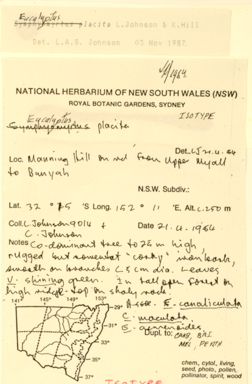 Eucalyptus
Symphyomyrtus placita L.Johnson & K.Hill
Det. L.A.S. Johnson 03 Nov 1987.
NATIONAL HERBARIUM OF NEW SOUTH WALES (NSW)
ROYAL BOTANIC GARDENS, SYDNEY
ISOTYPE
Eucalyptus
Symphyomyrtus placita
Det. LJ 21.4.84
Loc. Manning Hill on rd from Upper Myall
to Bunyah
N.S.W. Subdiv.:
Lat. 32 ° 15 'S Long. 152 ° 11 'E, Alt. c.250 m
Coll. L Johnson 9014 + Date 21.4.1984
C. Johnson
Notes Co-dominant tree to 25 m high,
rugged but somewhat "corky" ironbark,
smooth on branches < 5 cm dia. Leaves
v. shining green. In tall open forest on
high ridge-top on shaly rock
E. canaliculata
141° 145° 149° 153°
C. maculata,
29°
E. acmenoides
33°
DUPL. TO:
CANB, BRI
MEL PERTH
37°
chem, cytol, living,
seed, photo, pollen,
pollinator, spirit, wood
ISOTYPE